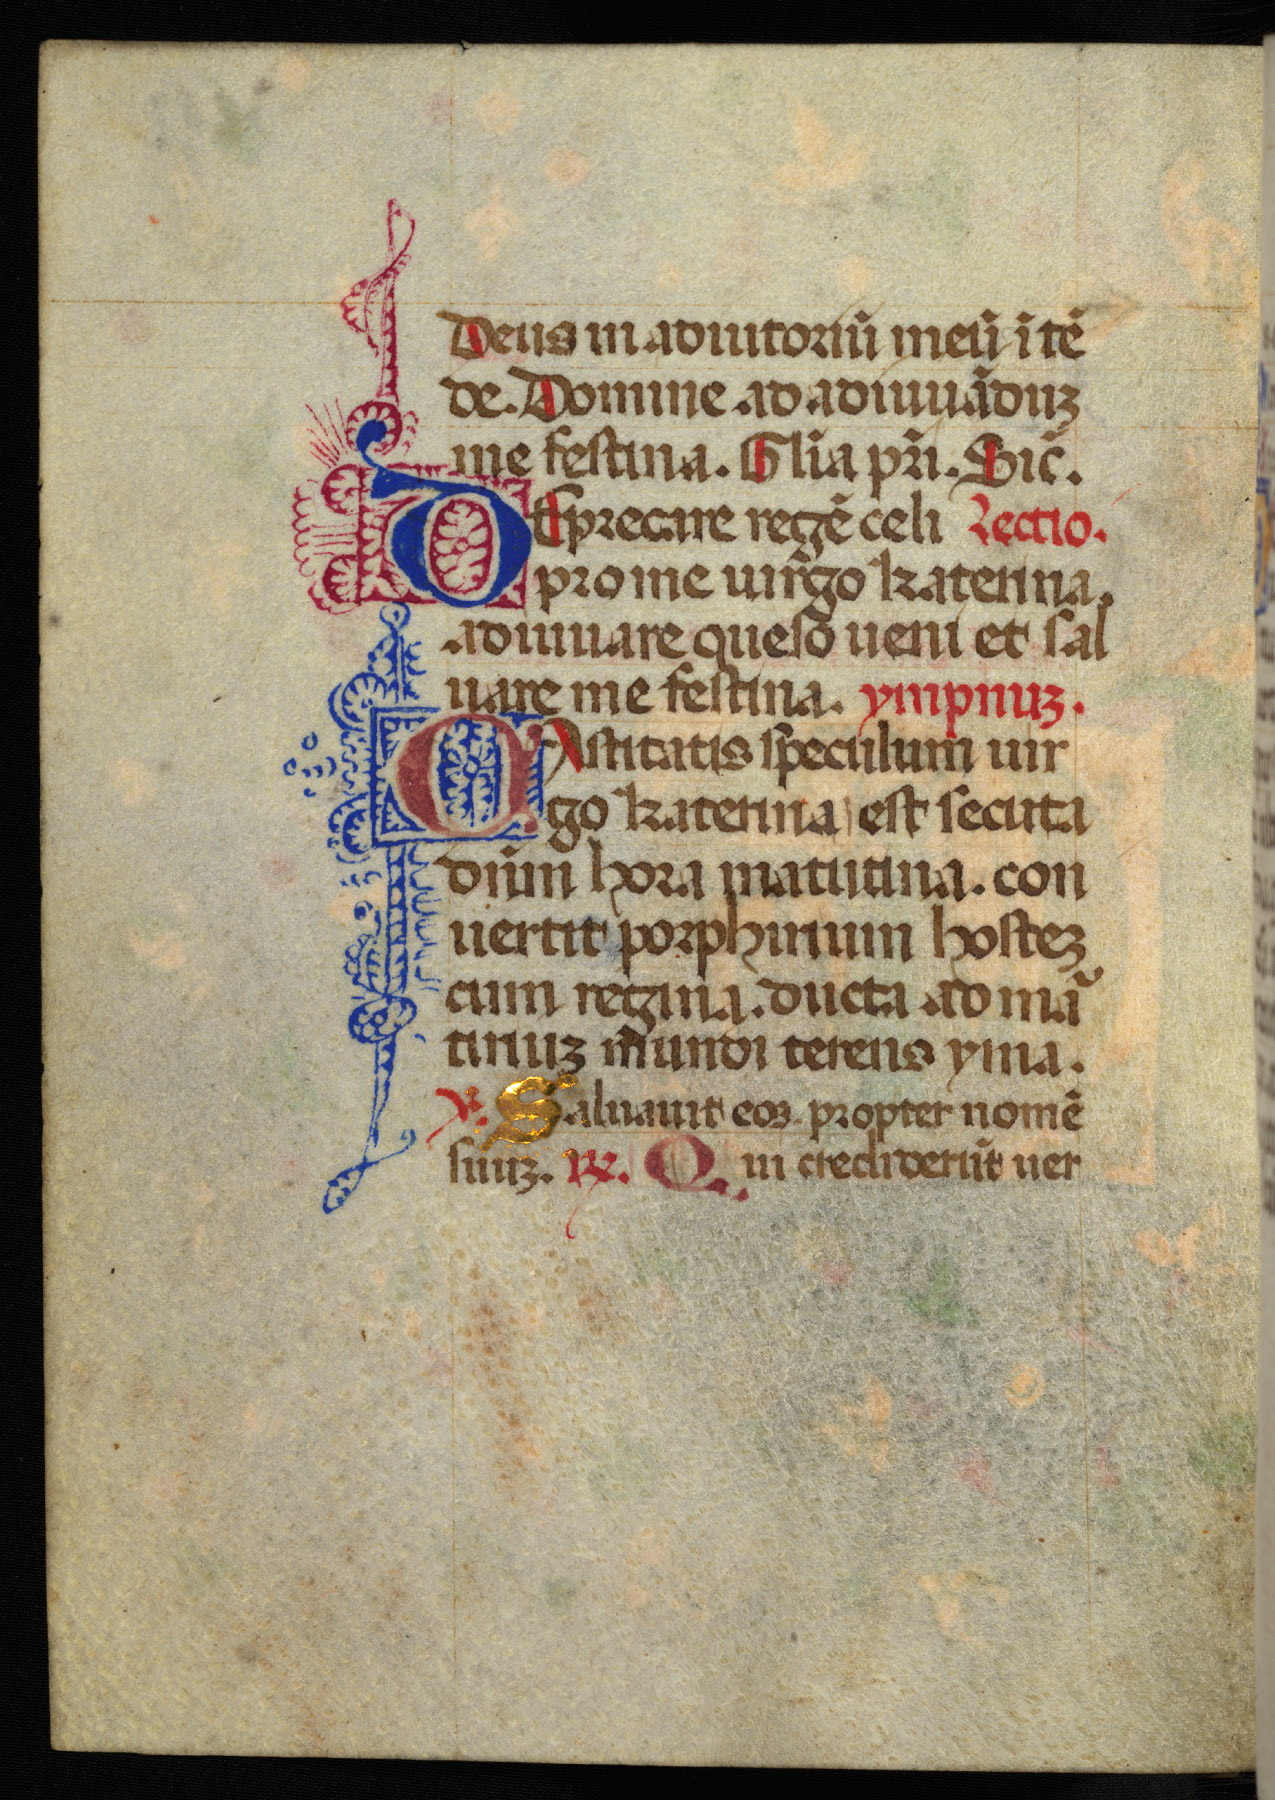 Deus in adiutoriũ meũ ĩtẽ
de. Domine ad adiuuãduz
me festina. Gl̃ia pr̃i. Sic̃.
DEprecare regẽ celi Lectio.
pro me uir̃go katerina.
adiuuare queso ueni et sal
uare me festina. ympnuz.
CAstitatis speculum uir
go katerina est secuta
dñm hora matutina. con
uertit porphirium hostez
cum regina. ducta ad mã
tiriuz mundi terens yma.
℣. Saluauit eos propter nomẽ
suuz. ℟. Qui crediderũt uer